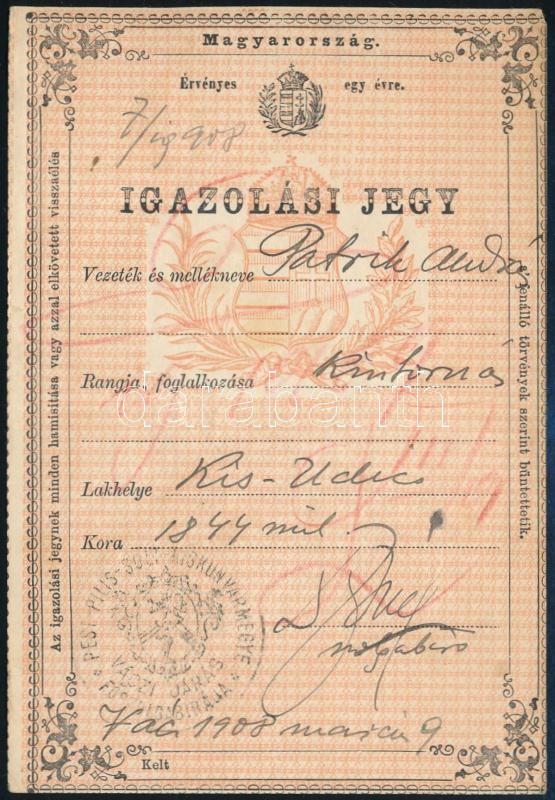 Magyarország.
Érvényes egy évre.
908
IGAZOLÁSI JEGY
Vezeték és mellékneve Patrik András
Rangja, foglalkozása Kintornás
darabanth
Lakhelye Kis-
Kora 1844
PEST-PILIS-SOLT-KISKUNVÁRMEGYE
VÁCZI JÁRÁS
FŐSZOLGABIRÁJA
szolgabiró
Vác 1908 márcis 9
Kelt
Az igazolási jegynek minden hamisitása vagy azzal elkövetett visszaélés
a fenálló törvények szerint büntettetik.